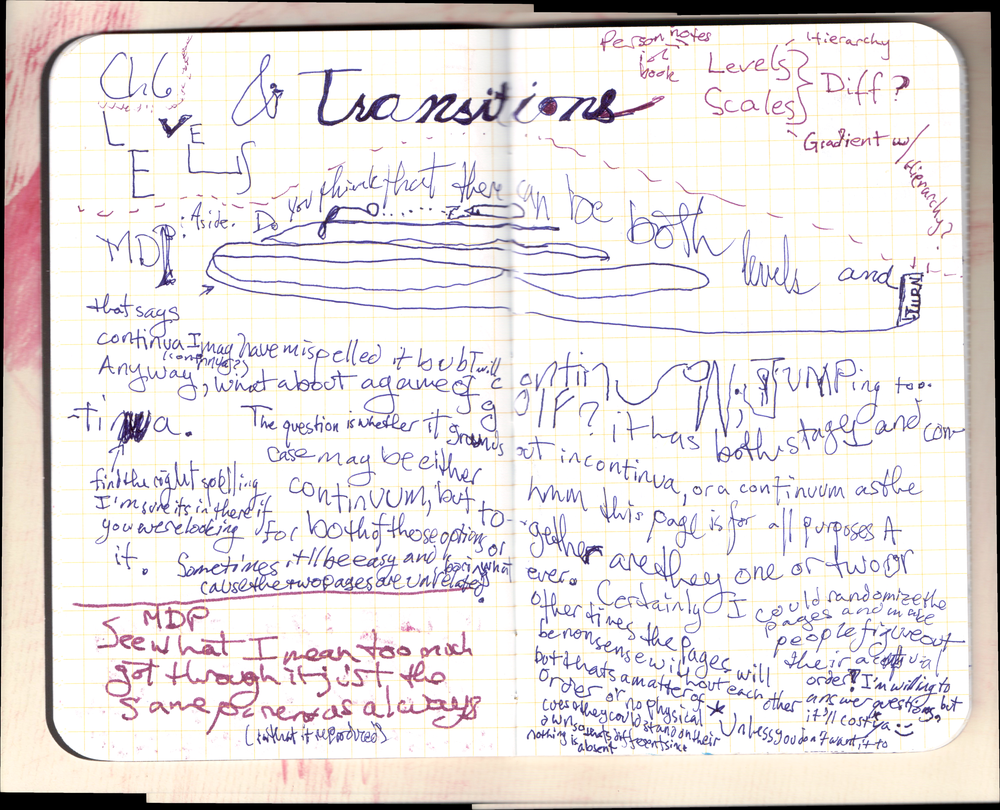 Ch6
LEVELS
& Transitions
Person notes
book
Levels } Hierarchy
Scales } Diff?
Gradient w/
Hierarchy?
MDP: Aside. Do you think that there can be both levels and
TURN
that says
continua I may have mispelled it but I will
(continua?)
Anyway, what about a game of g
OLF? it has both stages and con-
continuum; JUMPing too.
-tinua.
The question is whether it grounds
out in continua, or a continuum as the
case may be either
continuum, but
hmm this page is for all purposes A
find the right spelling
I'm sure its in there if
you were looking for
it.
both of those options or
to-
gether are they one or two or
ever. Certainly I could randomize the
pages and make
people figure out
their actual
order! I'm willing to
answer questions, but
it'll cost ya
Sometimes it'll be easy and
cause the two pages are unrelated.
Other times the pages will
be nonsense without each other
but thats a matter of
order or no physical
cues & they could stand on their
own so whats different since
nothing is absent
* Unless you don't want it to
MDP
See what I mean too much
got through it just the
same
as always
(in that it reproduced)